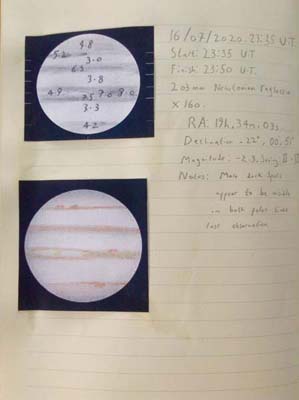 4.8
5.2
3.0
6.5
3.8
4.9 7.5 7.0 8.0
3.3
4.2
16/07/2020. 23:35 UT
Start: 23:35 UT
Finish: 23:50 U.T.
203mm Newtonian Reflector
X 160.
RA: 19h, 34m, 03s.
Declination -22°, 00, 51"
Magnitude: -2.9,
Notes: More dark spots
appear to be visible
on both poles since
last observation